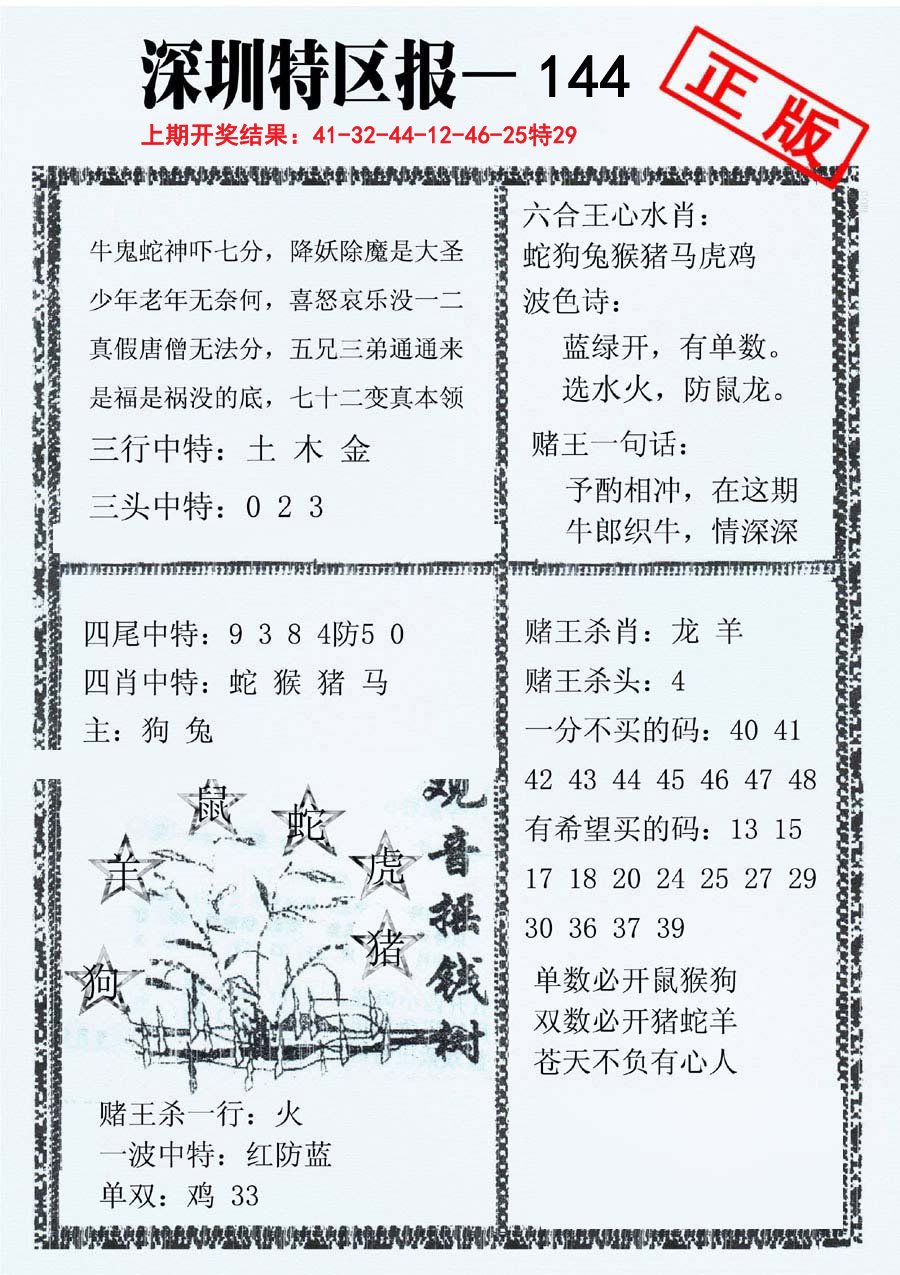 深圳特区报—144
正版
上期开奖结果：41-32-44-12-46-25特29
牛鬼蛇神吓七分，降妖除魔是大圣
少年老年无奈何，喜怒哀乐没一二
真假唐僧无法分，五兄三弟通通来
是福是祸没的底，七十二变真本领
三行中特：土 木 金
三头中特：0 2 3
六合王心水肖：
蛇狗兔猴猪马虎鸡
波色诗：
蓝绿开，有单数。
选水火，防鼠龙。
赌王一句话：
予酌相冲，在这期
牛郎织牛，情深深
四尾中特：9 3 8 4防5 0
四肖中特：蛇 猴 猪 马
主：狗 兔
鼠
蛇
羊
虎
猪
狗
观音摇钱树
赌王杀一行：火
一波中特：红防蓝
单双：鸡 33
赌王杀肖：龙 羊
赌王杀头：4
一分不买的码：40 41
42 43 44 45 46 47 48
有希望买的码：13 15
17 18 20 24 25 27 29
30 36 37 39
单数必开鼠猴狗
双数必开猪蛇羊
苍天不负有心人